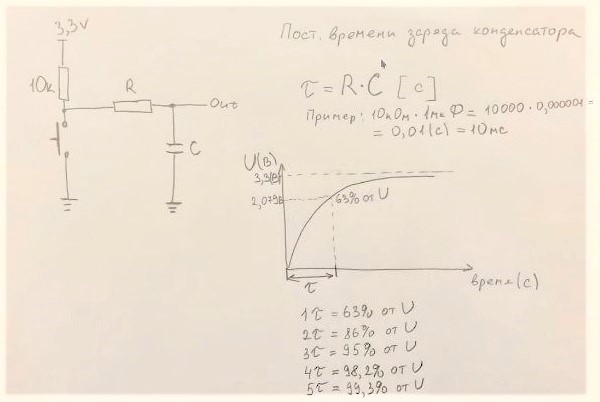 3,3V
10к
R
Out
C
Пост. времени заряда конденсатора
τ = R·C [с]
Пример: 10кОм · 1мкФ = 10000 · 0,000001 =
= 0,01(с) = 10мс
U(В)
3,3(В)
2,079В
63% от U
τ
время(с)
1τ = 63% от U
2τ = 86% от U
3τ = 95% от U
4τ = 98,2% от U
5τ = 99,3% от U